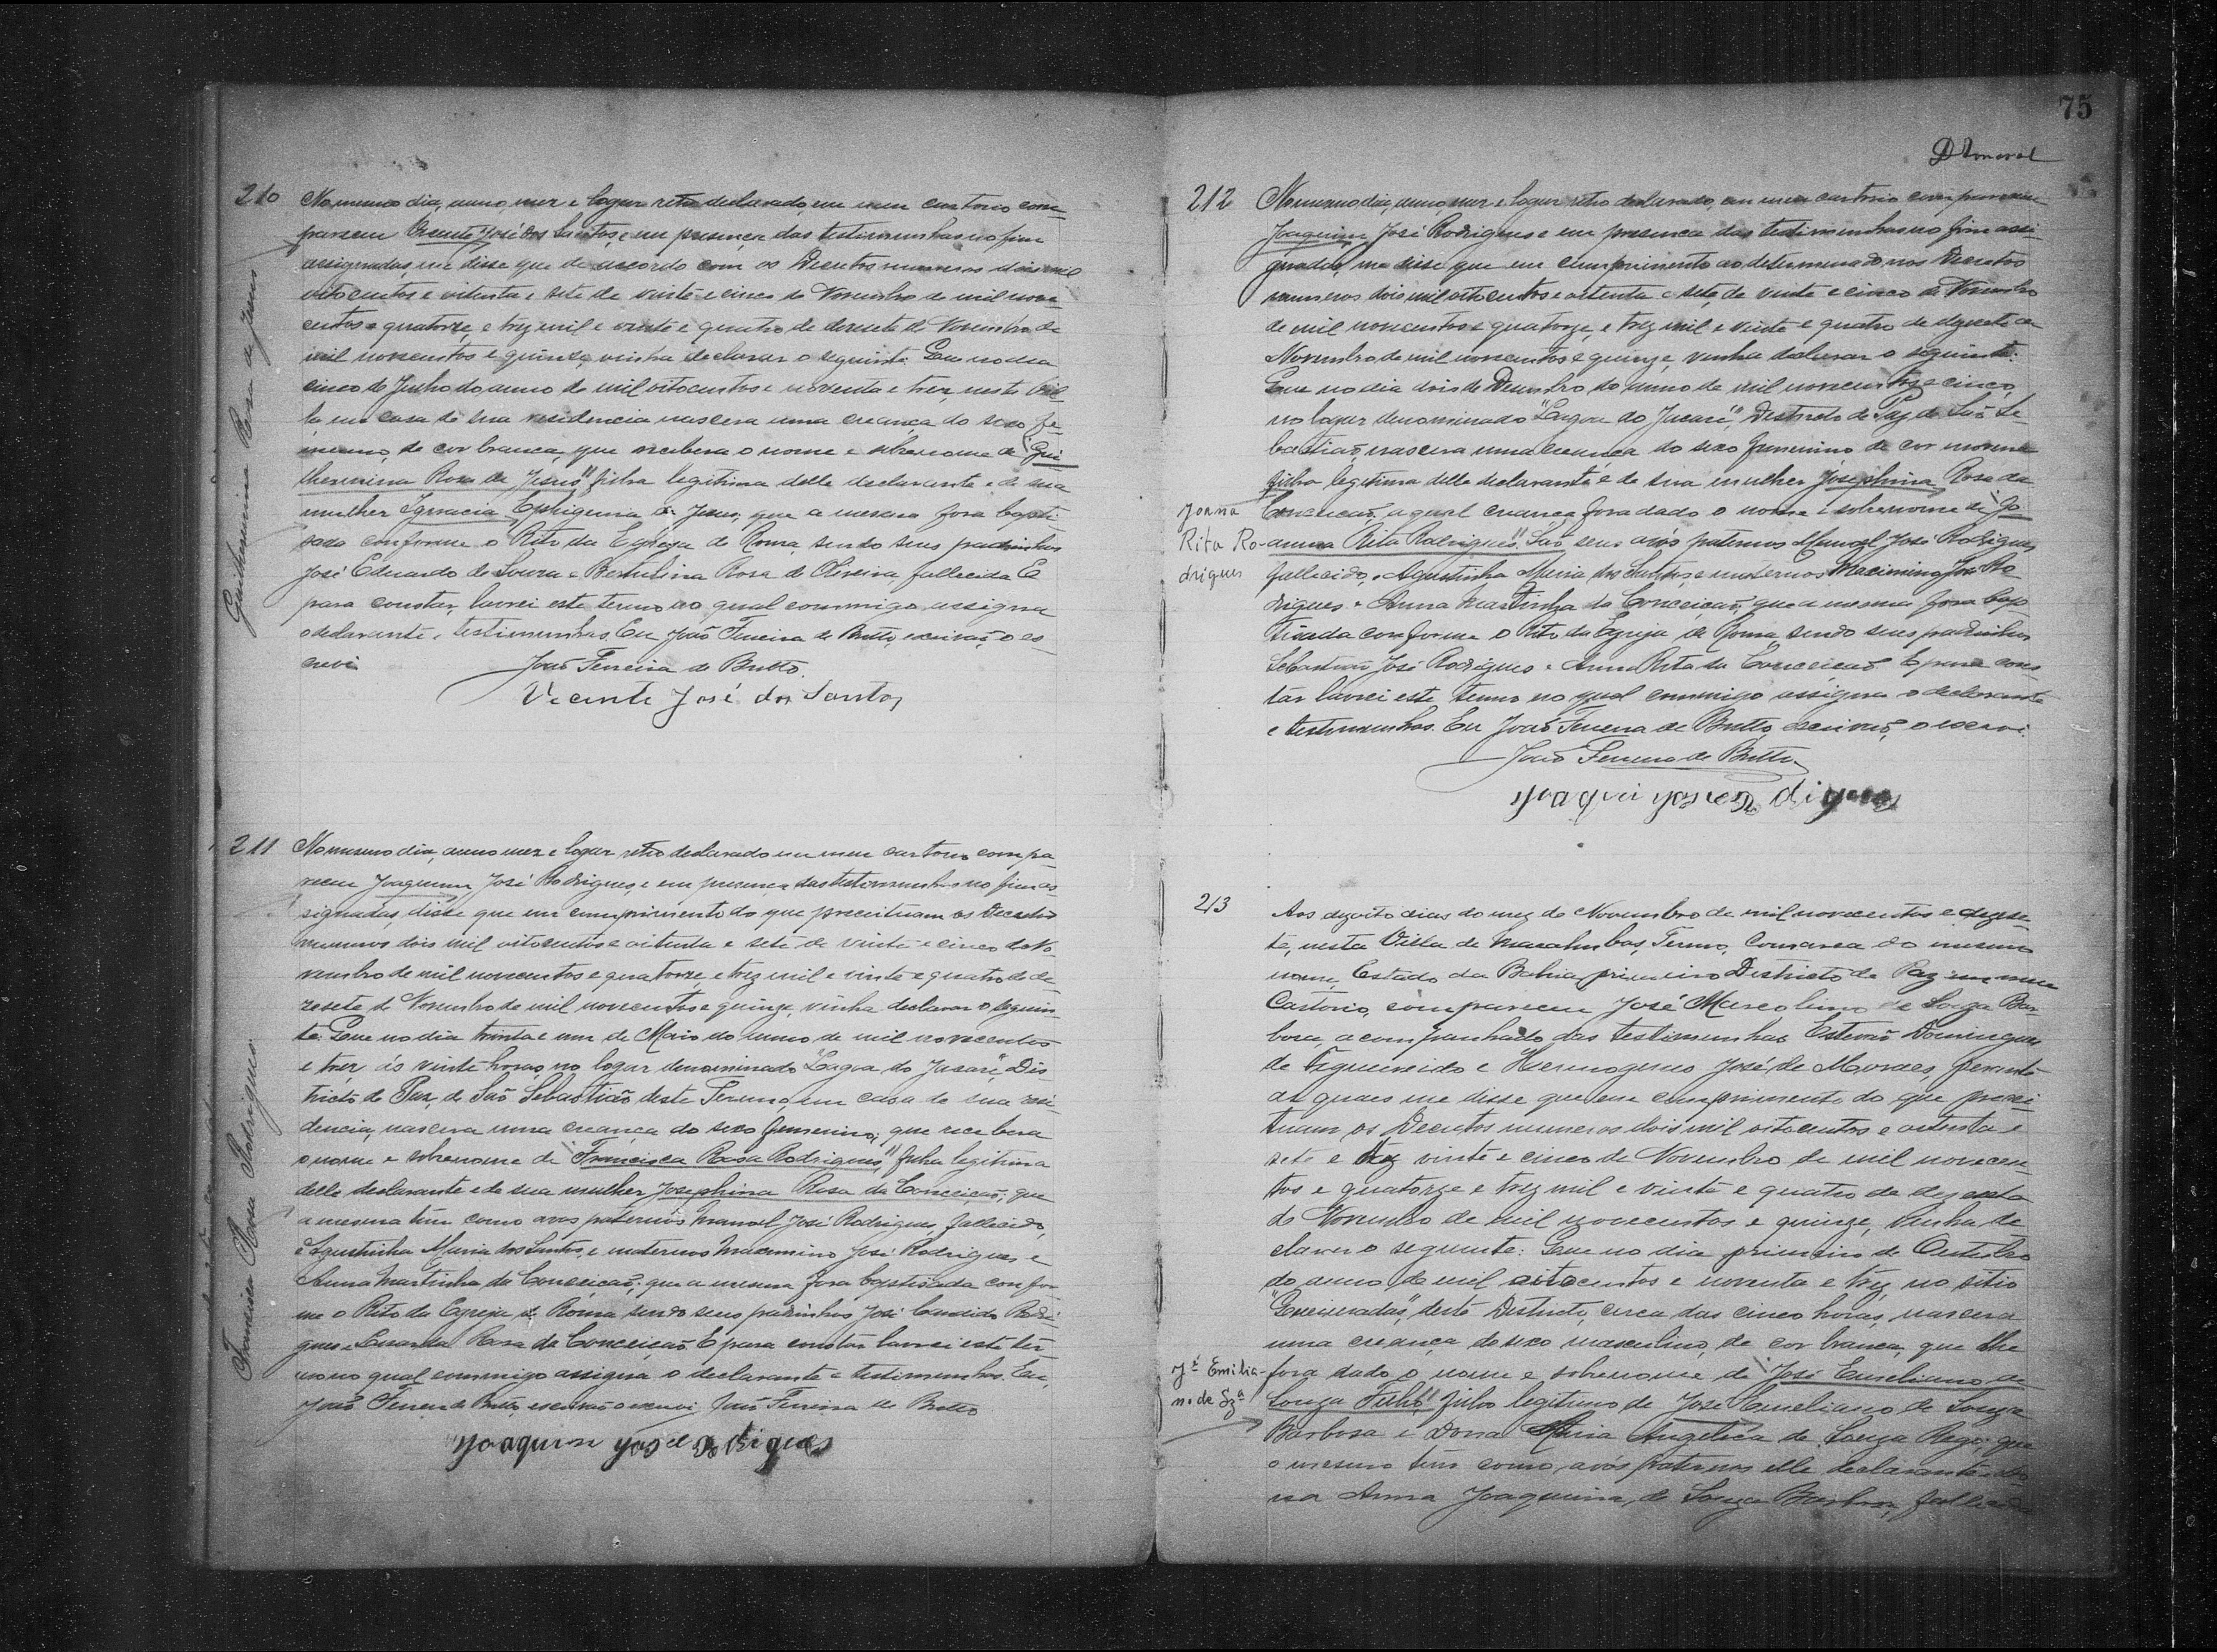 210
Guilhermina Rosa de Jesus
No mesmo dia, anno, mez e logar retro declarado, em meu cartorio com-
pareceu Vicente José dos Santos, e em presença das testimunhas no fim
assignadas, me disse que de accordo com os Decretos numeros dois mil
oitocentos e oitenta e sete de vinte e cinco de Novembro de mil nove
centos e quatorze, e trez mil e vinte e quatro de dezesete de Novembro de
mil novecentos e quinze, vinha declarar o seguinte: Que no dia
cinco de Junho do anno de mil oitocentos e noventa e trez, nesta Vil-
la em casa de sua residencia nascera uma creança do sexo fe-
minino, de cor branca, que recebera o nome e sobrenome de "Gui
lhermina Rosa de Jesus" filha legitima delle declarante e de sua
mulher Ignacia Ephigenia de Jesus, que a mesma fora bapti
sada conforme o Rito da Egreja de Roma, sendo seus padrinhos
José Eduardo de Souza e Bertulina Rosa de Oliveira, fallecida. E
para constar, lavrei este termo no qual commigo assigna
o declarante e testimunhas. Eu João Ferreira de Britto, escrivão, o es-
crevi
João Ferreira de Britto.
Vicente José dos Santos
211
Francisca Rosa Rodrigues
No mesmo dia, anno mez e logar retro declarado em meu cartorio compa-
receu Joaquim José Rodrigues, e em presença das testimunhas no fim as
signadas, disse que em cumprimento do que preceituam os Decretos
numeros dois mil oitocentos e oitenta e sete de vinte e cinco de No-
vembro de mil novecentos e quatorze, e trez mil e vinte e quatro de de-
zesete de Novembro de mil novecentos e quinze, vinha declarar o seguin-
te: Que no dia trinta e um de Maio do anno de mil novecentos
e trez, ás vinte horas, no logar denominado "Lagoa do Jucaré", Dis-
tricto de Paz de São Sebastião deste Termo, em casa de sua resi-
dencia, nascera uma creança do sexo femenino, que recebera
o nome e sobrenome de "Francisca Rosa Rodrigues", filha legitima
delle declarante e de sua mulher Josephina Rosa da Conceição; que
a mesma tem como avós paternos Manoel José Rodrigues, fallecido,
e Agustinha Maria dos Santos, e maternos Maximino José Rodrigues e
Anna Martinha da Conceição; que a mesma fora baptisada confor-
me o Rito da Egreja de Roma sendo seus padrinhos José Candido Rodri-
gues e Rosa da Conceição. E para constar lavrei este ter-
mo no qual commigo assigna o declarante e testimunhas. Eu,
João Ferreira de Britto, escrivão o escrevi. João Ferreira de Britto
Joaquim José Rodrigues
75
D Amaral
212
No mesmo dia, anno, mez e logar retro declarado, em meu cartorio compareceu
Joaquim José Rodrigues e em presença das testimunhas no fim assi-
gnadas, me disse que em cumprimento ao determinado nos Decretos
numeros dois mil oitocentos e oitenta e sete, de vinte e cinco de Novembro
de mil novecentos e quatorze, e trez mil e vinte e quatro de dezesete de
Novembro de mil novecentos e quinze, vinha declarar o seguinte:
Que no dia dois de Dezembro do anno de mil novecentos e cinco,
no logar denominado "Lagoa do Jucaré", Districto de Paz de São Se-
bastião, nascera uma creança do sexo femenino de cor morena
filha legitima delle declarante e de sua mulher Josephina Rosa da
Conceição, a qual creança fora dado o nome e sobrenome de "Jo
anna Rita Rodrigues". São seus avós paternos Manoel José Rodrigues,
fallecido, e Agustinha Maria dos Santos, e maternos Maximino José Ro
drigues e Anna Martinha da Conceição, que a mesma fora bap
tisada conforme o Rito da Egreja de Roma sendo seus padrinhos
Sebastião José Rodrigues e Anna Rita da Conceição. E para cons
tar lavrei este termo no qual commigo assigna o declarante
e testimunhas. Eu João Ferreira de Britto, escrivão, o escrevi.
João Ferreira de Britto
Joaquim José Rodrigues
Joanna
Rita Ro-
drigues
213
Aos dezoito dias do mez de Novembro de mil novecentos e dezese-
te, nesta Villa de Macahubas, Termo, Comarca do mesmo
nome, Estado da Bahia, primeiro Districto de Paz em meu
Cartorio, compareceu José Marcolino de Souza Bar-
bosa, acompanhado das testimunhas Estevão Domingues
de Figueiredo e Hermogenes José de Moraes, perante
as quaes me disse que em cumprimento do que precei-
tuam os Decretos numeros dois mil oitocentos e oitenta e
sete e trez vinte e cinco de Novembro de mil novecen-
tos e quatorze e trez mil e vinte e quatro de dezesete
de Novembro de mil novecentos e quinze, vinha de
clarar o seguinte: Que no dia primeiro de Outubro
do anno de mil oitocentos e noventa e trez, no sitio
deste Districto, cerca das cinco horas, nascera
uma creança do sexo masculino, de cor branca, que lhe
fora dado o nome e sobrenome de "José Emeliano de
Souza Filho" filho legitimo de José Emeliano de Souza
Barbosa e Dona Maria Angelica de Souza Rego; que
o mesmo tem como avós paternos elle declarante e Do-
na Anna Joaquina de Souza Barbosa, fallecida
Jé Emilia-
no de Sza